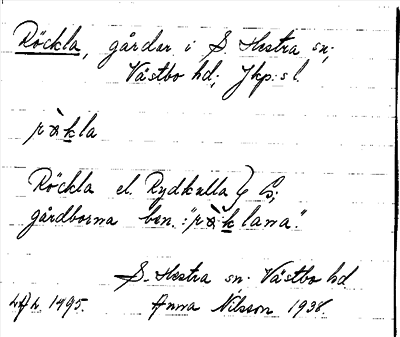 Röckla, gårdar i S. Hestra sn;
Västbo hd; Jkp:s l.
rö̀kla
Röckla el. Rydkulla
gårdborna ben.: "rö̀klarna".
S. Hestra sn. Västbo hd
1495. Anna Nilsson 1938.